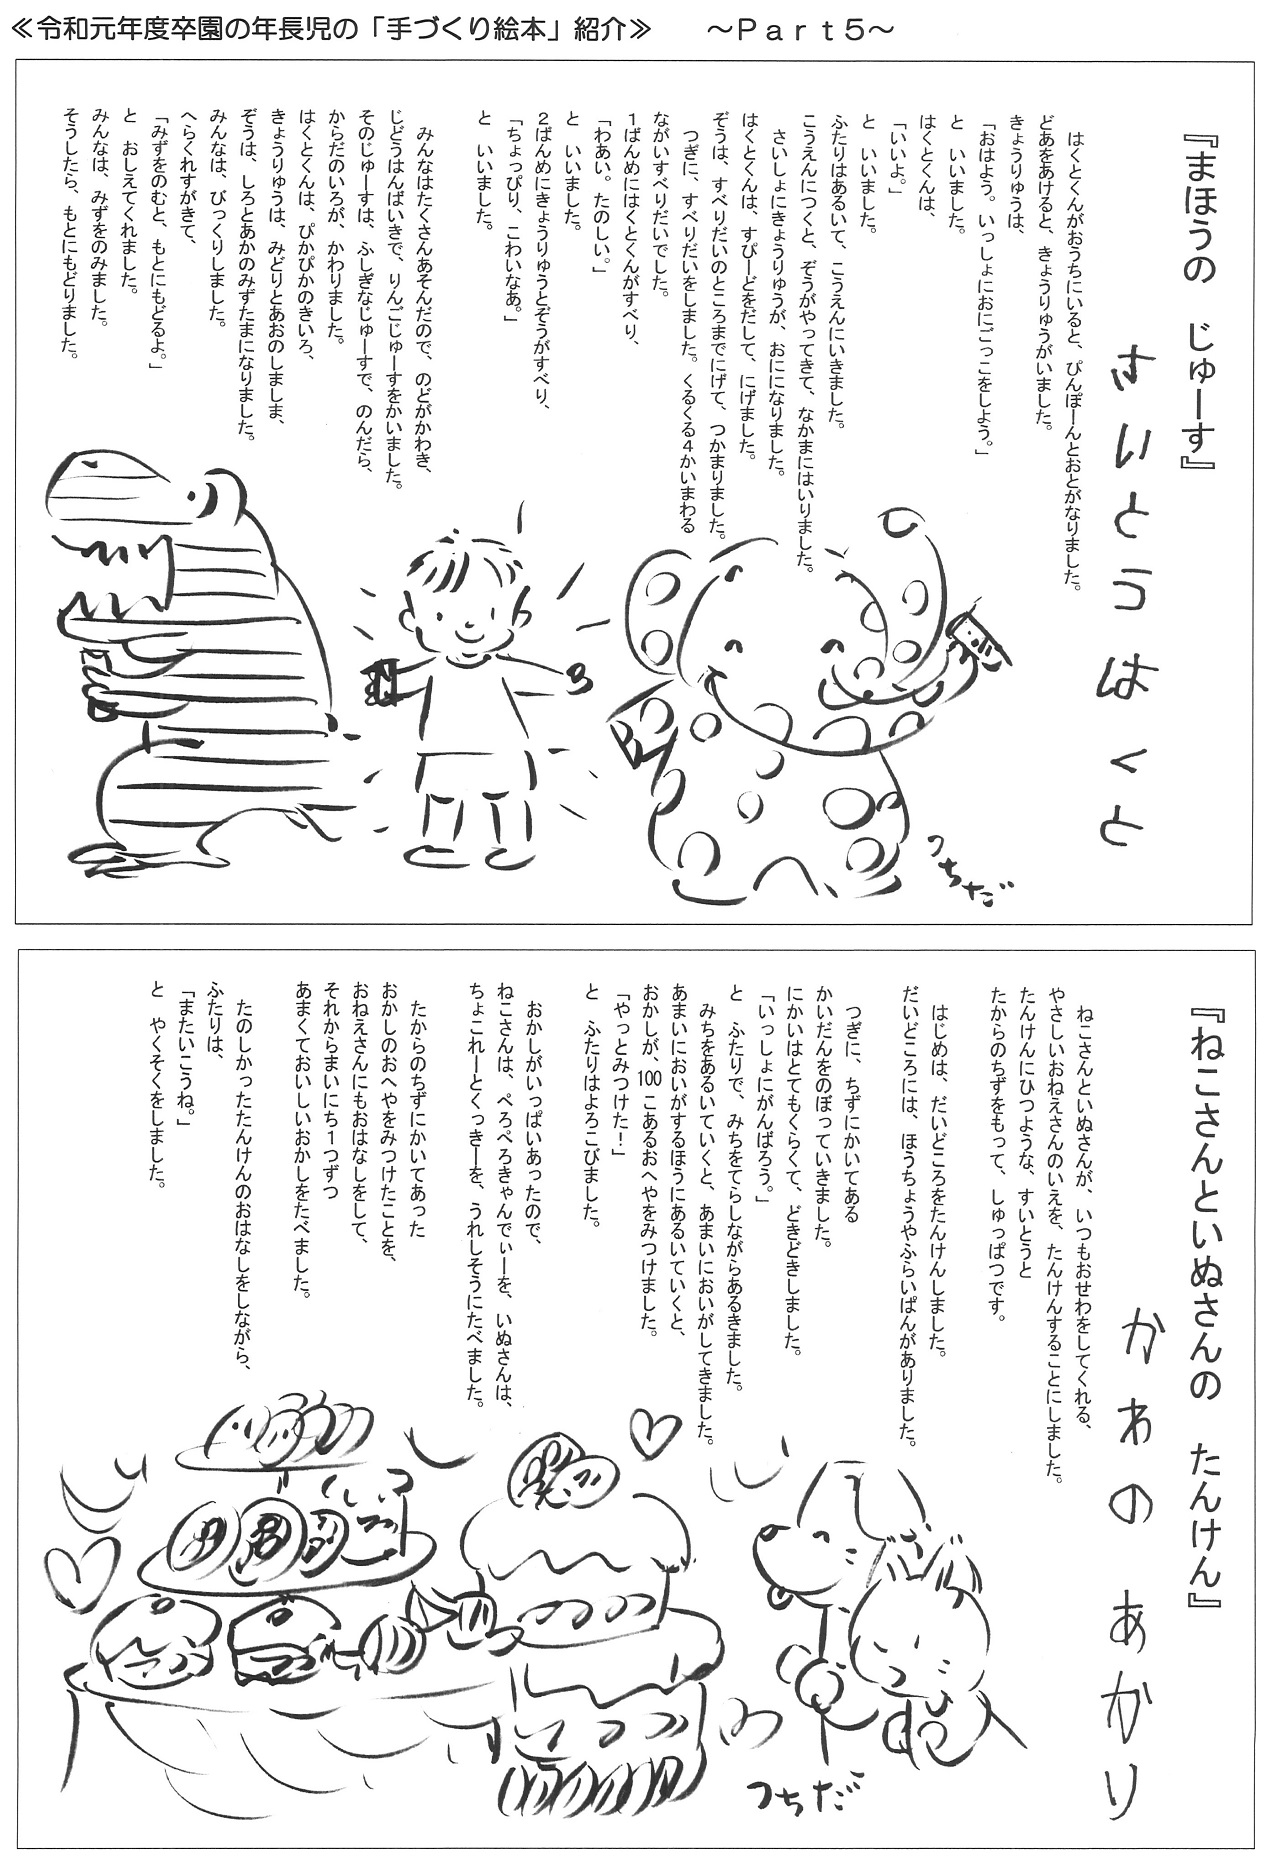 ≪令和元年度卒園の年長児の「手づくり絵本」紹介≫　～Part５～
『まほうの　じゅーす』
さいとうはくと
はくとくんがおうちにいると、ぴんぽーんとおとがなりました。
どあをあけると、きょうりゅうがいました。
きょうりゅうは、
「おはよう。いっしょにおにごっこをしよう。」
と　いいました。
はくとくんは、
「いいよ。」
と　いいました。
ふたりはあるいて、こうえんにいきました。
こうえんにつくと、ぞうがやってきて、なかまにはいりました。
さいしょにきょうりゅうが、おにになりました。
はくとくんは、すぴーどをだして、にげました。
ぞうは、すべりだいのところまでにげて、つかまりました。
つぎに、すべりだいをしました。くるくる４かいまわる
ながいすべりだいでした。
１ばんめにはくとくんがすべり、
「わあい。たのしい。」
と　いいました。
２ばんめにきょうりゅうとぞうがすべり、
「ちょっぴり、こわいなあ。」
と　いいました。
みんなはたくさんあそんだので、のどがかわき、
じどうはんばいきで、りんごじゅーすをかいました。
そのじゅーすは、ふしぎなじゅーすで、のんだら、
からだのいろが、かわりました。
はくとくんは、ぴかぴかのきいろ、
きょうりゅうは、みどりとあおのしましま、
ぞうは、しろとあかのみずたまになりました。
みんなは、びっくりしました。
へらくれすがきて、
「みずをのむと、もとにもどるよ。」
と　おしえてくれました。
みんなは、みずをのみました。
そうしたら、もとにもどりました。
つちだ
『ねこさんといぬさんの　たんけん』
かわの　あかり
ねこさんといぬさんが、いつもおせわをしてくれる、
やさしいおねえさんのいえを、たんけんすることにしました。
たんけんにひつような、すいとうと
たからのちずをもって、しゅっぱつです。
はじめは、だいどころをたんけんしました。
だいどころには、ほうちょうやふらいぱんがありました。
つぎに、ちずにかいてある
かいだんをのぼっていきました。
にかいはとてもくらくて、どきどきしました。
「いっしょにがんばろう。」
と　ふたりで、みちをてらしながらあるきました。
みちをあるいていくと、あまいにおいがしてきました。
あまいにおいがするほうにあるいていくと、
おかしが、100こあるおへやをみつけました。
「やっとみつけた！」
と　ふたりはよろこびました。
おかしがいっぱいあったので、
ねこさんは、ぺろぺろきゃんでぃーを、いぬさんは、
ちょこれーとくっきーを、うれしそうにたべました。
たからのちずにかいてあった
おかしのおへやをみつけたことを、
おねえさんにもおはなしをして、
それからまいにち１つずつ
あまくておいしいおかしをたべました。
たのしかったたんけんのおはなしをしながら、
ふたりは、
「またいこうね。」
と　やくそくをしました。
つちだ